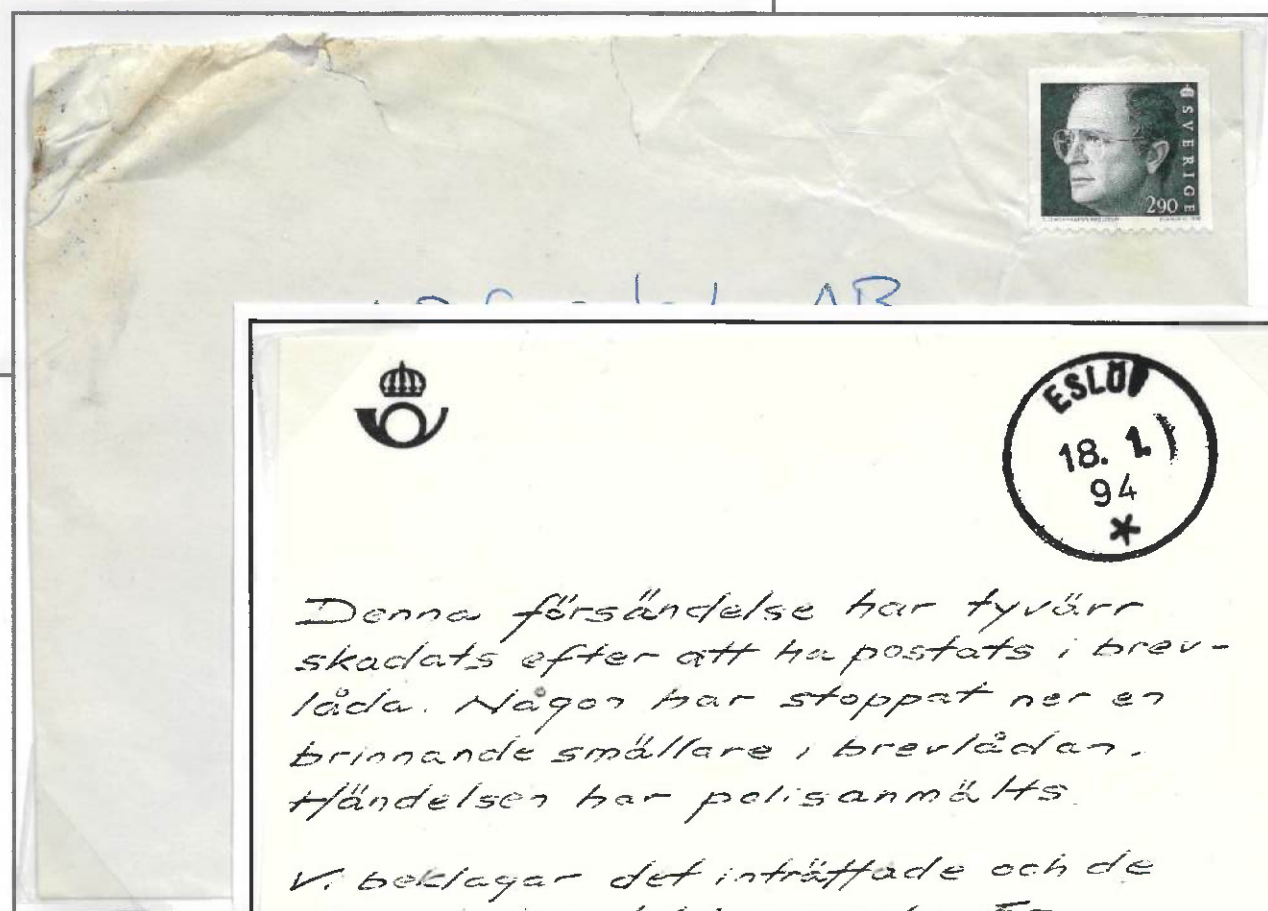 SVERIGE
290
AB
ESLÖV
18. 1.
94
Denna försändelse har tyvärr
skadats efter att ha postats i brev-
låda. Någon har stoppat ner en
brinnande smällare i brevlådan.
Händelsen har polisanmälts.
Vi beklagar det inträffade och de